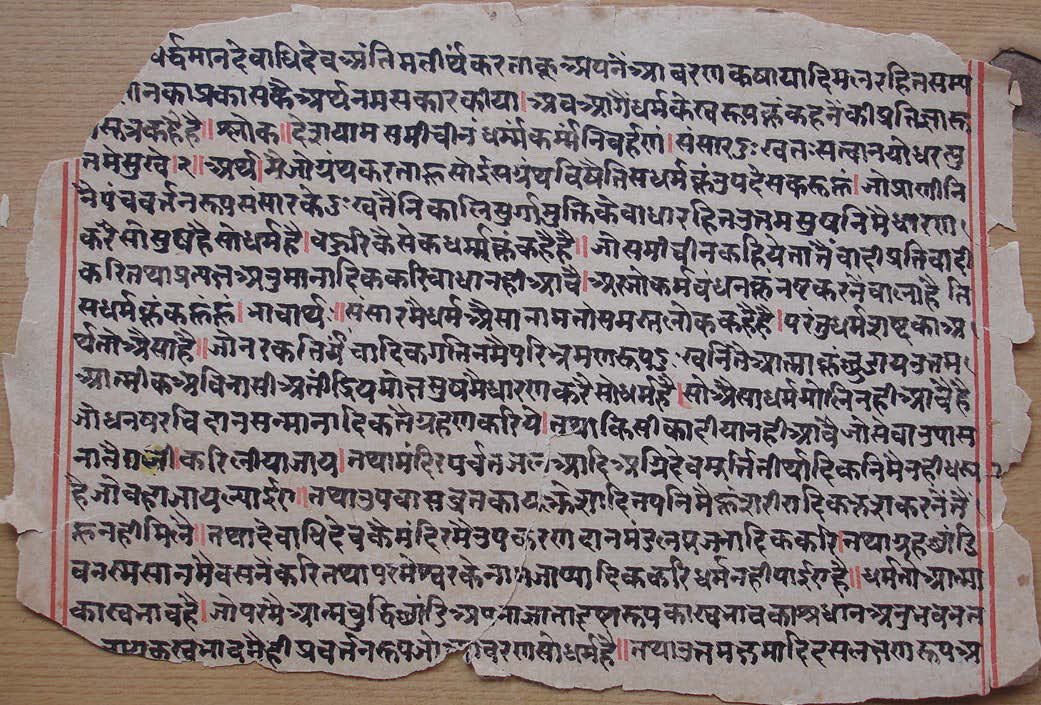 वर्द्धमानदेवाधिदेवअंतिमतीर्थकरताकूअपनैआवरणकषायादिमलरहितसम्य
नकाप्रकासकैअर्थनमसकारकीया। अवआगैधर्मकेस्वरूपकूंकहनेंकीप्रतिज्ञारू
सूत्रकहैहै॥ श्लोक॥ देशयामिसमीचीनंधर्म्मंकर्म्मनिवर्हणं। संसारदुःखतःसत्वान्योधरत्यु
त्तमेसुखे।२॥ अर्थ। मैंजोग्रंथकरताहूंसोईसग्रंथविषैतिसधर्मकूंउपदेसकरूहूं। जोप्राणीनि
नैपंचवर्त्तनरूपसंसारकेदुःखतैंनिकालिसुर्गमुक्तिकेवाधारहितउत्तमसुषनिमैधारण
करैसोसुषहैसोधर्महै। वहुरिकैसेकधर्म्मकूंकहैहै॥ जोसमीचीनकहियेतातैंवादीप्रतिवादी
करितथाप्रत्यक्षअनुमानादिककरिवाधानहीआवै। अरजोकर्मवंधनकूंनष्टकरनेंवालोहैति
सधर्मकूंकहूंहूं। भावार्थ॥ संसारमैधर्मअैसानामतोसमस्तलोककहैहै। परंतुधर्मशष्टकाअ
र्थतौअैसाहै॥ जोनरकतिर्यंचादिकगतिनमैपरिभ्रमणरूपदुःखनितैआत्माकूंछुडायउत्तम
आत्मीकअविनासीअतींद्रियमोक्षसुषमैधारणकरैसोधर्महै। सोअैसाधर्ममोलिनहीआवैहै
जोधनषरचिदानसन्मानादिकतैग्रहणकरिये। तथाकिसीकादीयानहीआवैजोसेवाउपास
नातै करिलीयाजाय। तथामंदिरपर्वतजलआदिअग्निदेवमूर्त्तितीर्थादिकनिमैनहीधस्या
हैजोवहाजायल्याईए॥ तथाउपवासव्रतकायक्लेशादितपनिमैहूंशरीरादिकक्रशकरनेंतैं
हूंनहीमिलै॥ तथादेवाधिदेवकेमंदिरमैउपकरणदानमंडलपूजनादिककरि। तथाग्रहछांडि
वनस्मसानमेवसनेंकरितथापरमेश्वरकेनामजाप्यादिककरिधर्मनहीपाईएहै॥ धर्मतोआत्मा
कास्वभावहै। जोपरमैआत्मवुद्धिछांडिअपनाज्ञातादृष्टारूपकास्वभावकाश्रधानअनुभवनत
ज्ञायकस्वभावमैहीप्रवर्त्तनरूपजोआचरणसोधर्महै॥ तथाउत्तमक्षमादिदसलक्षणरूपअ